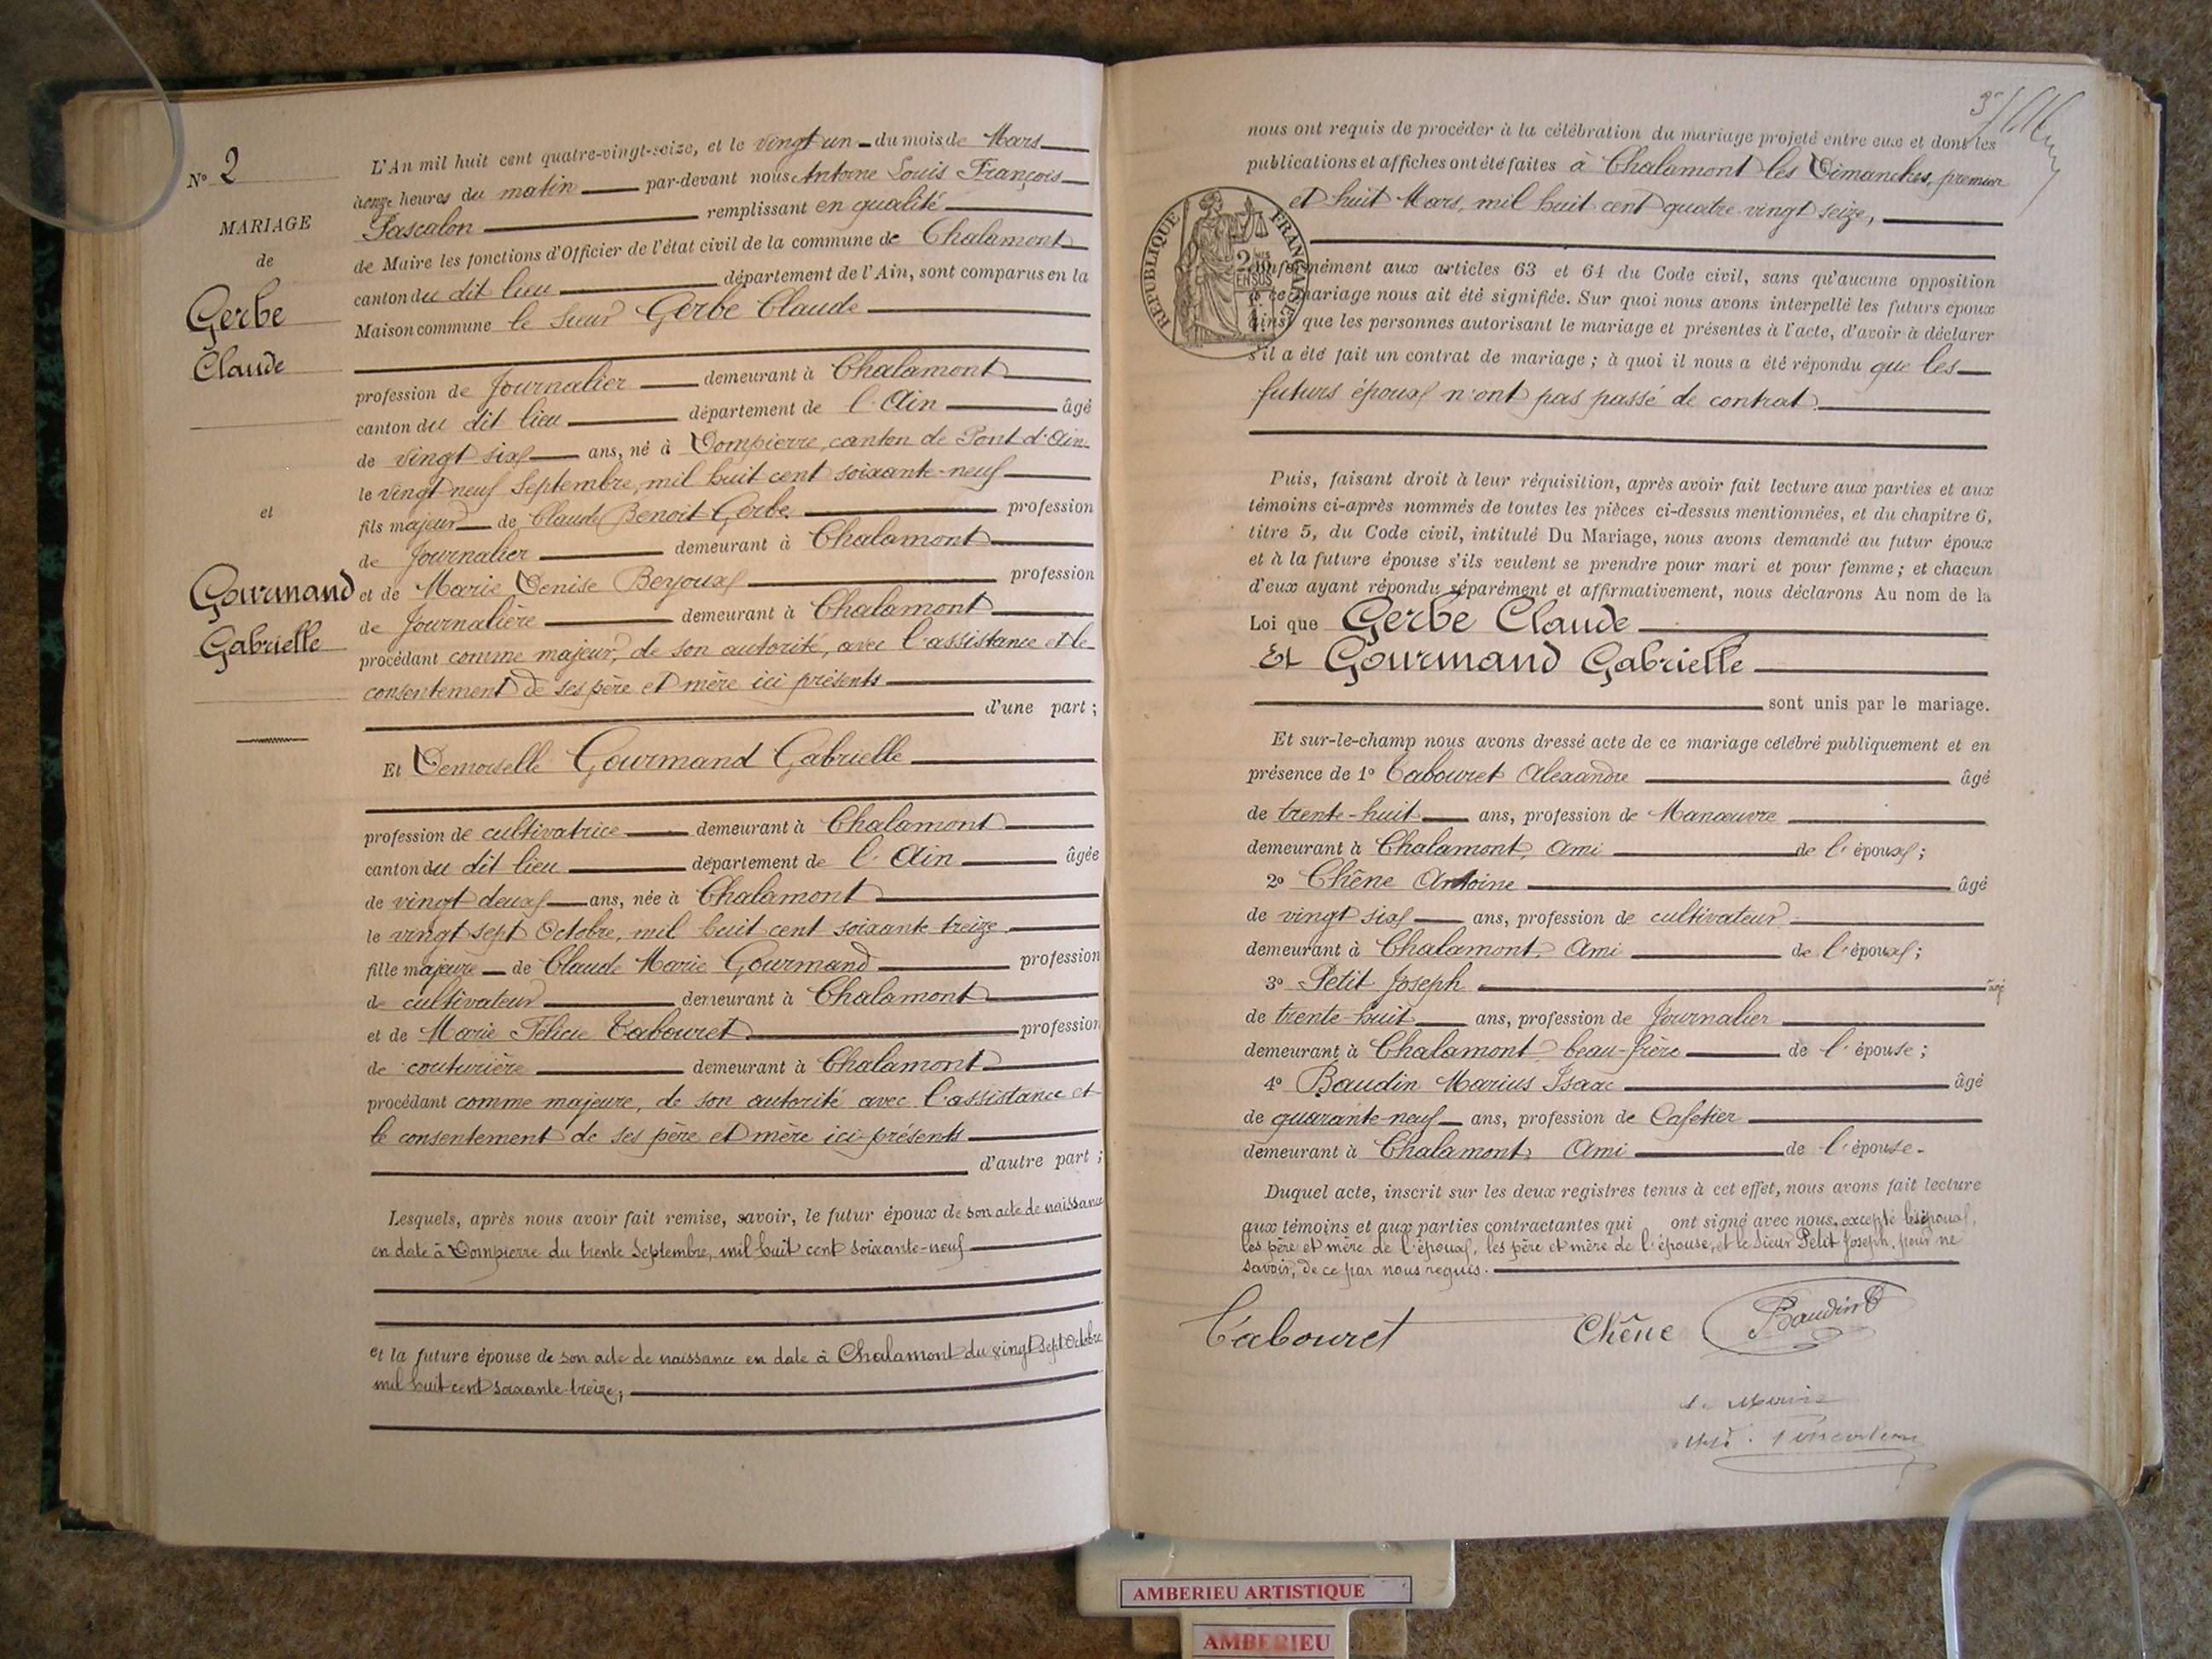 N° 2
MARIAGE
de
Gerbe
Claude
et
Gourmand
Gabrielle
L'An mil huit cent quatre-vingt-seize, et le vingt un du mois de Mars
à onze heures du matin par-devant nous Antoine Louis François
Pascalon remplissant en qualité
de Maire les fonctions d'Officier de l'état civil de la commune de Chalamont
canton du dit lieu département de l'Ain, sont comparus en la
Maison commune le sieur Gerbe Claude
profession de Journalier demeurant à Chalamont
canton du dit lieu département de l'Ain âgé
de vingt six ans, né à Dompierre, canton de Pont d'Ain
le vingt neuf Septembre, mil huit cent soixante-neuf
fils majeur de Claude Benoit Gerbe profession
de Journalier demeurant à Chalamont
et de Marie Denise Berjoux profession
de Journalière demeurant à Chalamont
procédant comme majeur, de son autorité, avec l'assistance et le
consentement de ses père et mère ici présents
d'une part ;
Et Demoiselle Gourmand Gabrielle
profession de cultivatrice demeurant à Chalamont
canton du dit lieu département de l'Ain âgée
de vingt deux ans, née à Chalamont
le vingt sept Octobre, mil huit cent soixante treize
fille majeure de Claude Marie Gourmand profession
de cultivateur demeurant à Chalamont
et de Marie Félicie Tabouret profession
de couturière demeurant à Chalamont
procédant comme majeure, de son autorité avec l'assistance et
le consentement de ses père et mère ici présents
d'autre part ;
Lesquels, après nous avoir fait remise, savoir, le futur époux de son acte de naissance
en date à Dompierre du trente Septembre, mil huit cent soixante-neuf
et la future épouse de son acte de naissance en date à Chalamont du vingt sept Octobre
mil huit cent soixante-treize,
nous ont requis de procéder à la célébration du mariage projeté entre eux et dont les
publications et affiches ont été faites à Chalamont les Dimanches, premier
et huit Mars, mil huit cent quatre vingt seize,
RÉPUBLIQUE FRANÇAISE
2
EN SUS
conformément aux articles 63 et 64 du Code civil, sans qu'aucune opposition
à ce mariage nous ait été signifiée. Sur quoi nous avons interpellé les futurs époux
ainsi que les personnes autorisant le mariage et présentes à l'acte, d'avoir à déclarer
s'il a été fait un contrat de mariage ; à quoi il nous a été répondu que les
futurs époux n'ont pas passé de contrat.
Puis, faisant droit à leur réquisition, après avoir fait lecture aux parties et aux
témoins ci-après nommés de toutes les pièces ci-dessus mentionnées, et du chapitre 6,
titre 5, du Code civil, intitulé Du Mariage, nous avons demandé au futur époux
et à la future épouse s'ils veulent se prendre pour mari et pour femme ; et chacun
d'eux ayant répondu séparément et affirmativement, nous déclarons Au nom de la
Loi que Gerbe Claude
Et Gourmand Gabrielle
sont unis par le mariage.
Et sur-le-champ nous avons dressé acte de ce mariage célébré publiquement et en
présence de 1° Tabouret Alexandre âgé
de trente-huit ans, profession de Manœuvre
demeurant à Chalamont, Ami de l'époux ;
2° Chêne Antoine âgé
de vingt six ans, profession de cultivateur
demeurant à Chalamont, Ami de l'époux ;
3° Petit Joseph âgé
de trente-huit ans, profession de Journalier
demeurant à Chalamont, beau-frère de l'épouse ;
4° Baudin Marius Isaac âgé
de quarante-neuf ans, profession de Cafetier
demeurant à Chalamont, Ami de l'épouse.
Duquel acte, inscrit sur les deux registres tenus à cet effet, nous avons fait lecture
aux témoins et aux parties contractantes qui ont signé avec nous, excepté les époux,
les père et mère de l'époux, les père et mère de l'épouse, et le sieur Petit Joseph, pour ne
savoir, de ce par nous requis.
Tabouret Chêne Baudin
AMBERIEU ARTISTIQUE
AMBERIEU